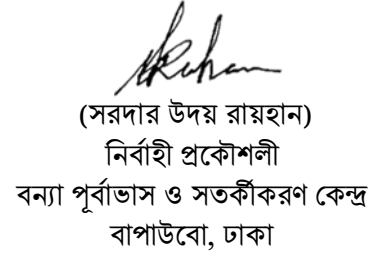 (সরদার উদয় রায়হান)
নির্বাহী প্রকৌশলী
বন্যা পূর্বাভাস ও সতর্কীকরণ কেন্দ্র
বাপাউবো, ঢাকা